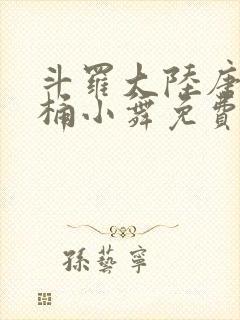 斗羅大陸唐
桶小舞免費
孫藝寧